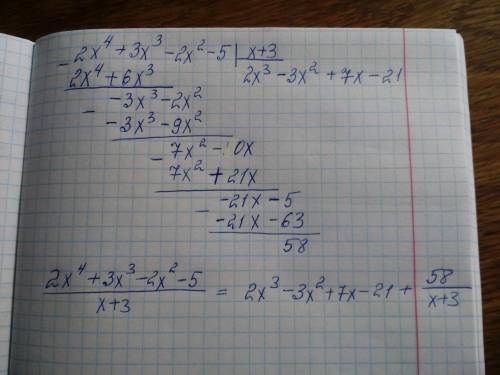 - 2x⁴ + 3x³ - 2x² - 5 | x+3
2x⁴ + 6x³ 2x³ - 3x² + 7x - 21
- -3x³ - 2x²
-3x³ - 9x²
- 7x² - 0x
7x² + 21x
- -21x - 5
-21x - 63
58
(2x⁴ + 3x³ - 2x² - 5)/(x+3) = 2x³ - 3x² + 7x - 21 + 58/(x+3)